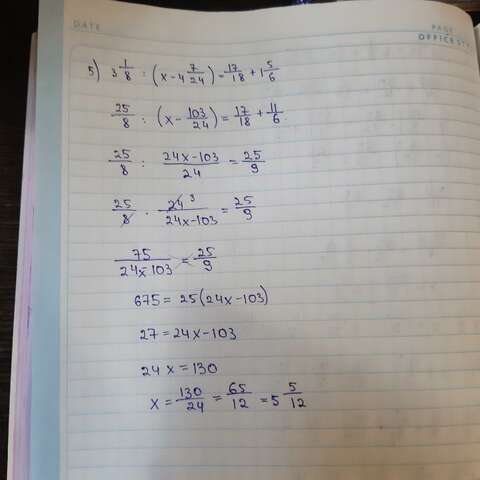 DATE
PAGE
5) 3 1/8 : (x - 4 7/24) = 17/18 + 1 5/6
25/8 : (x - 103/24) = 17/18 + 11/6
25/8 : 24x-103/24 = 25/9
25/8 · 24 3/24x-103 = 25/9
75/24x 103 = 25/9
675 = 25(24x-103)
27 = 24x-103
24x = 130
x = 130/24 = 65/12 = 5 5/12